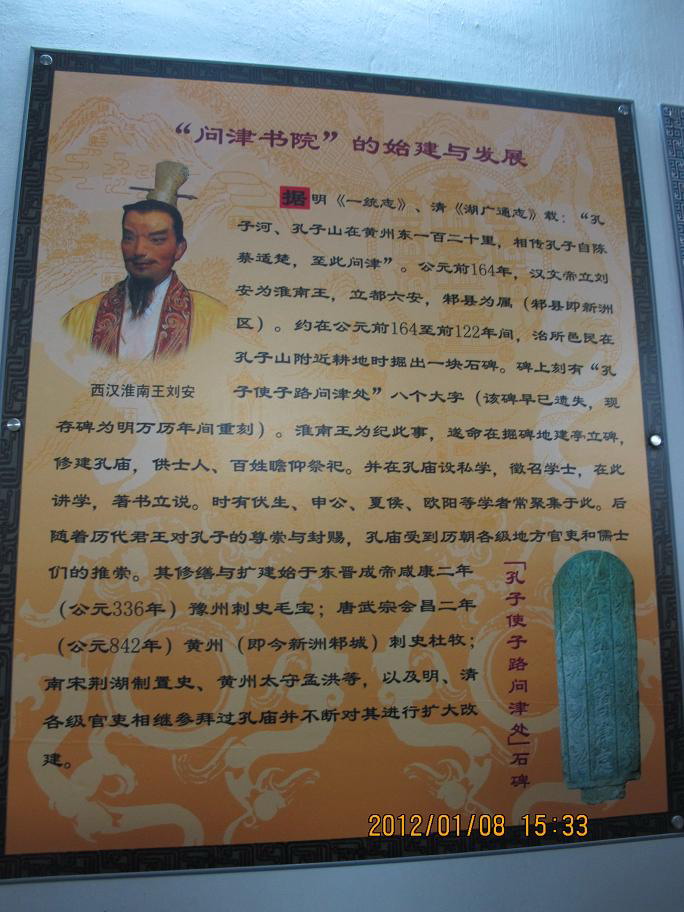 “问津书院”的始建与发展
据明《一统志》、清《湖广通志》载：“孔
子河、孔子山在黄州东一百二十里，相传孔子自陈
蔡适楚，至此问津”。公元前164年，汉文帝立刘
安为淮南王，立都六安，邾县为属（邾县即新洲
区）。约在公元前164至前122年间，治所邑民在
孔子山附近耕地时掘出一块石碑。碑上刻有“孔
子使子路问津处”八个大字（该碑早已遗失，现
存碑为明万历年间重刻）。淮南王为纪此事，遂命在掘碑地建亭立碑，
修建孔庙，供士人、百姓瞻仰祭祀。并在孔庙设私学，徵召学士，在此
讲学，著书立说。时有伏生、申公、夏侯、欧阳等学者常聚集于此。后
随着历代君王对孔子的尊崇与封赐，孔庙受到历朝各级地方官吏和儒士
们的推崇。其修缮与扩建始于东晋成帝咸康二年
（公元336年）豫州刺史毛宝；唐武宗会昌二年
（公元842年）黄州（即今新洲邾城）刺史杜牧；
南宋荆湖制置史、黄州太守孟洪等，以及明、清
各级官吏相继参拜过孔庙并不断对其进行扩大改
建。
西汉淮南王刘安
「孔子使子路问津处」石碑
2012/01/08 15:33